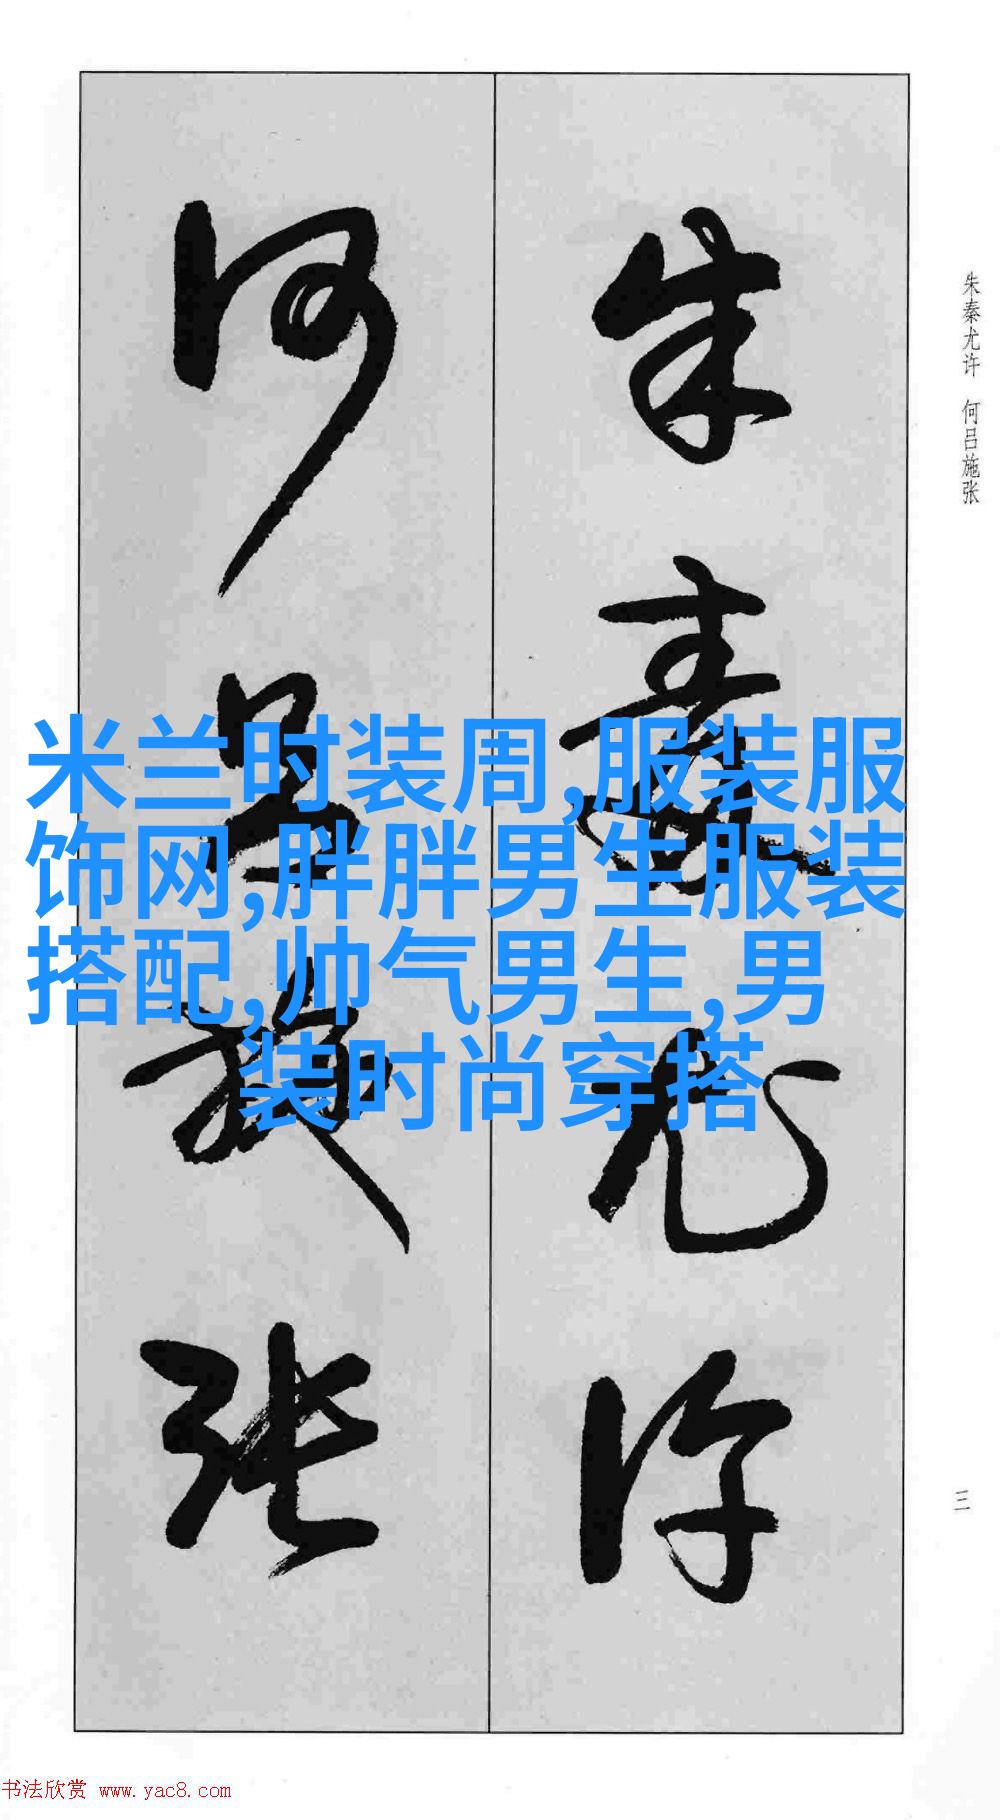 朱秦尤许
何吕施张
朱秦尤许 何吕施张
米兰时装周,服装服
饰网,胖胖男生服装
搭配,帅气男生,男
装时尚穿搭
三
书法欣赏 www.yac8.com